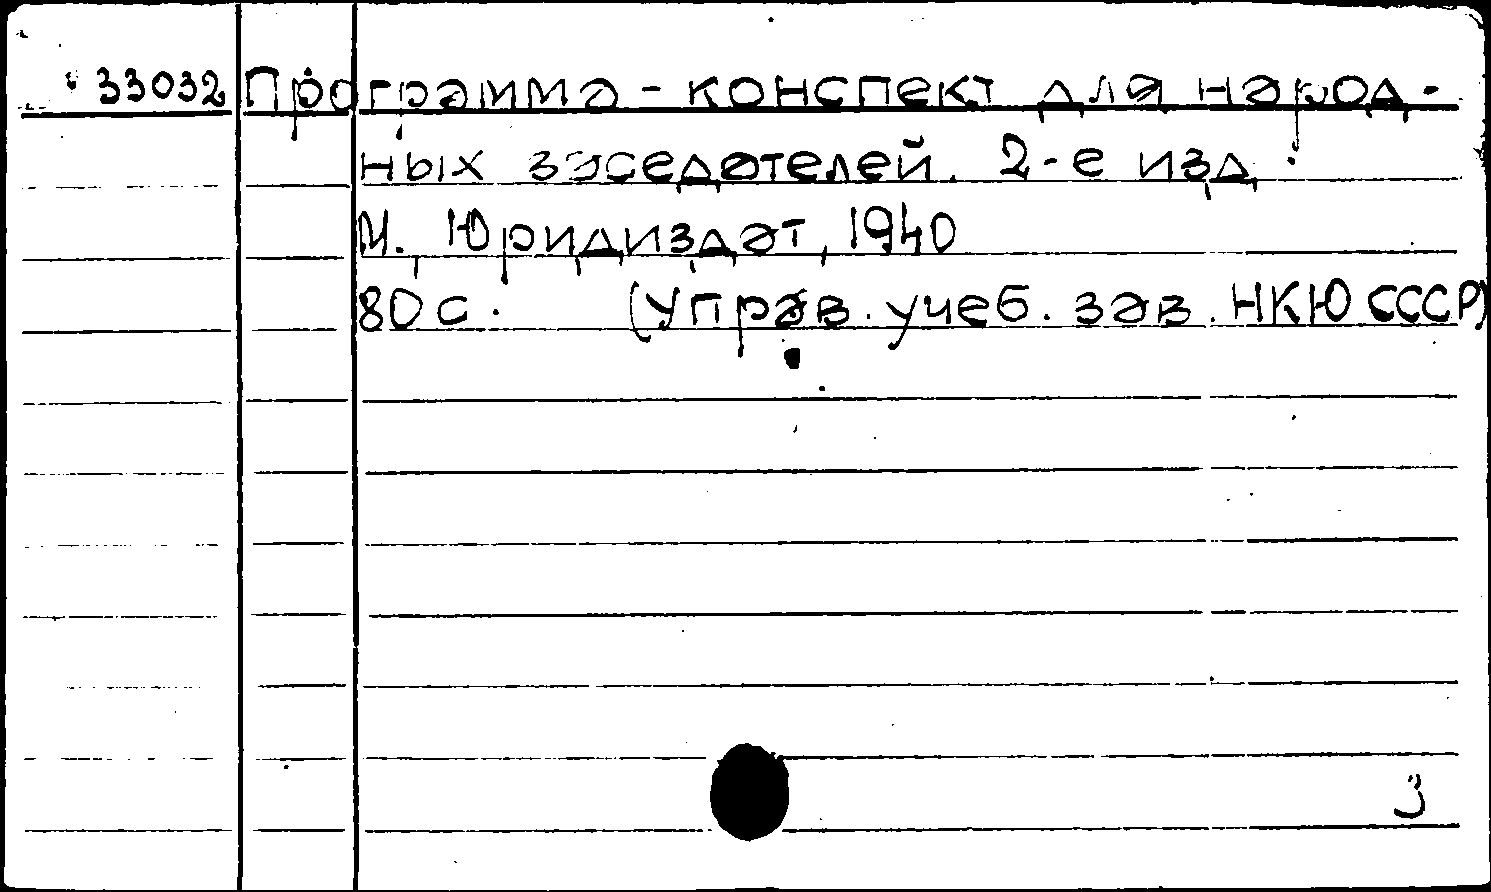 33032 Программа - конспект для народ-
ных заседателей. 2-е изд.
М., Юридиздат, 1940
80 с. (Управ. учеб. зав. НКЮ СССР)
3